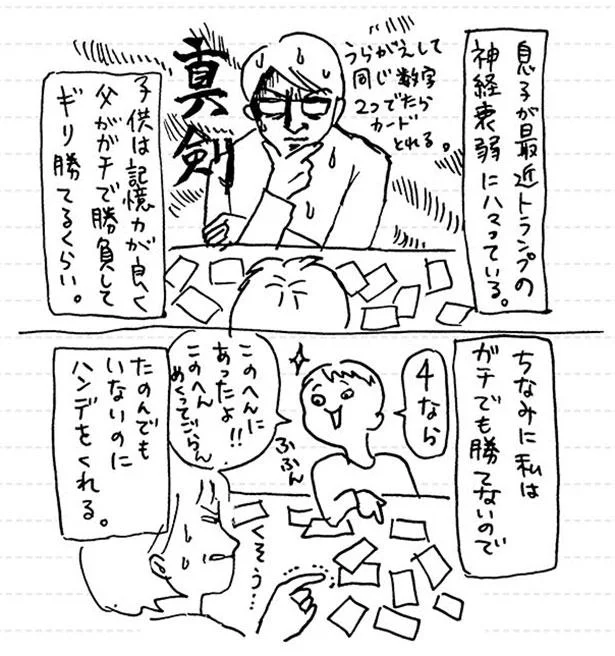 息子が最近トランプの
神経衰弱にハマっている。
うらがえして
同じ数字
2つでたら
カード
とれる。
真剣
子供は記憶力が良く
父がガチで勝負して
ギリ勝てるくらい。
ちなみに私は
ガチでも勝てないので
4なら
このへんに
あったよ!!
このへん
めくってごらん
ふふん
たのんでも
いないのに
ハンデをくれる。
くそう…